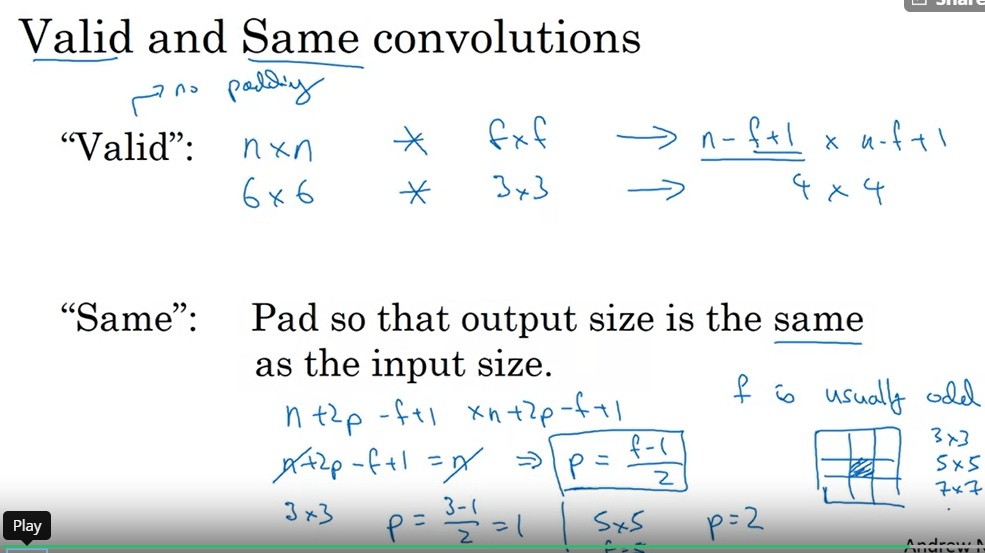 Share
Valid and Same convolutions
→ no padding
“Valid”: n×n * f×f → n-f+1 × n-f+1
6×6 * 3×3 → 4 × 4
“Same”: Pad so that output size is the same
as the input size.
n+2p-f+1 ×n+2p-f+1
n+2p-f+1 = n ⇒ p = f-1/2
3×3 p = 3-1/2 = 1 | 5×5 p=2
f is usually odd
3×3
5×5
7×7
Play
Andrew N